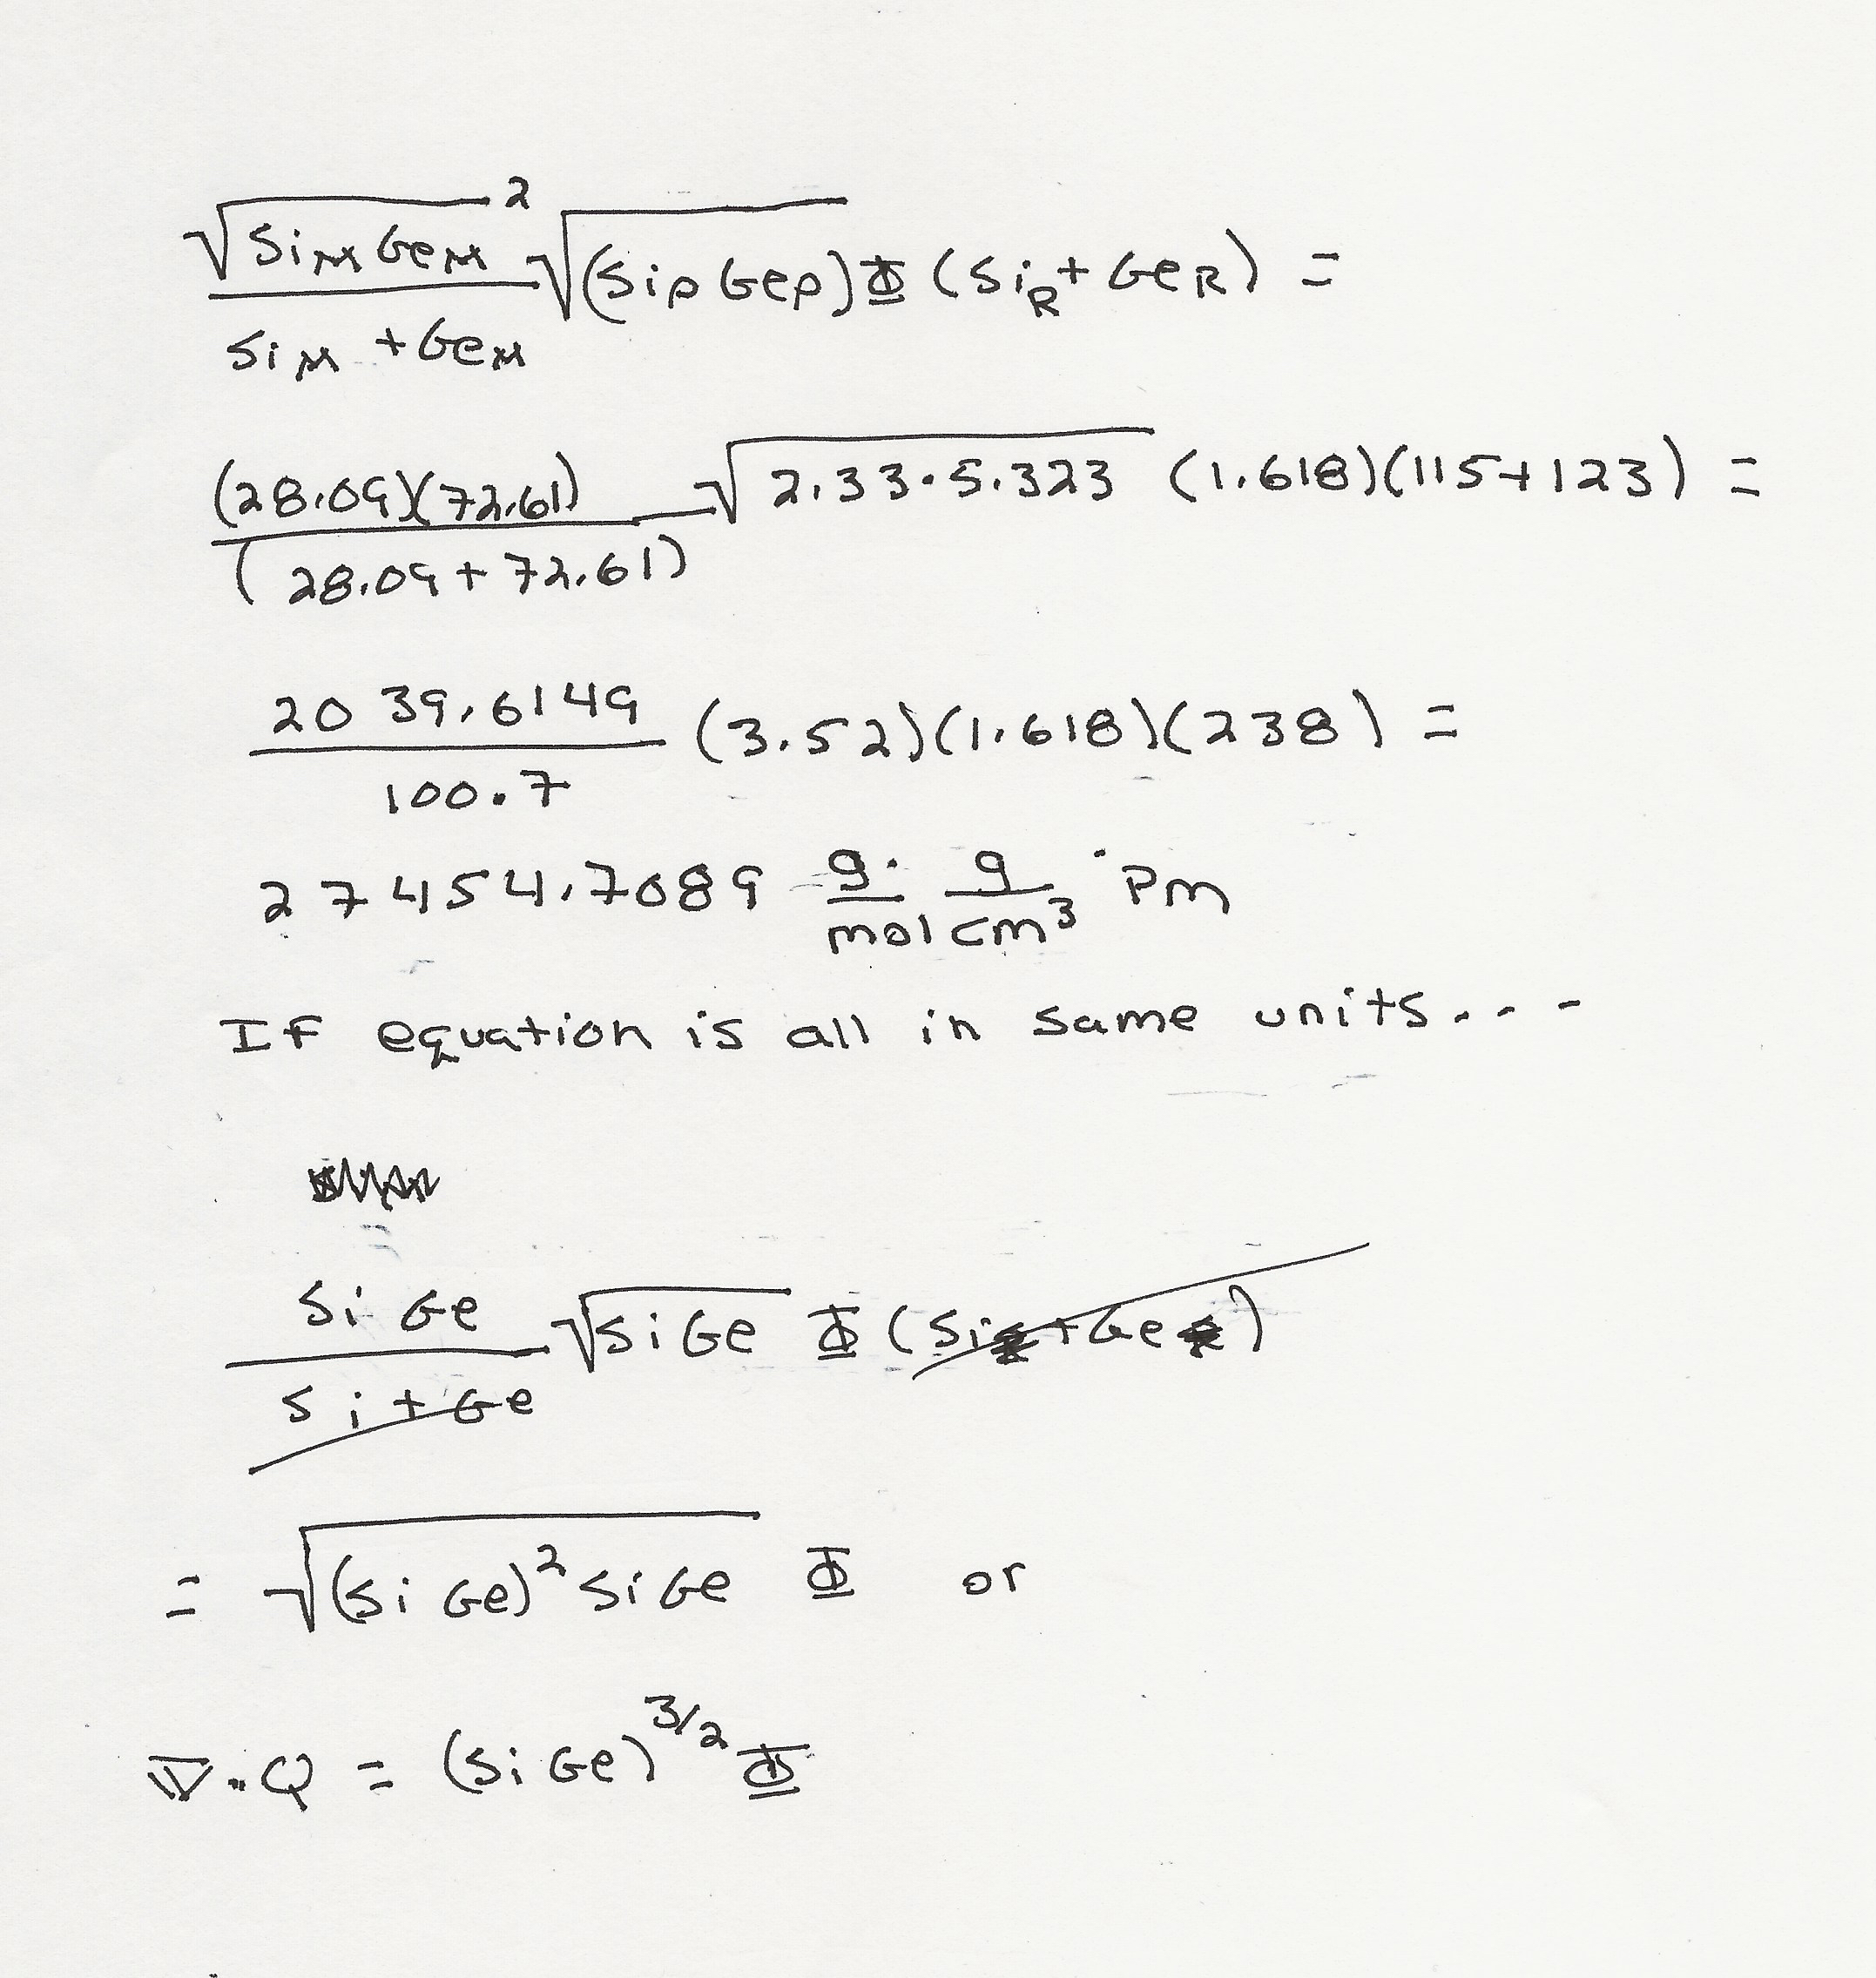 √(SiM GeM)² / (SiM + GeM) √((Siρ Geρ)) Φ (SiR + GeR) =
(28.09)(72.61) / (28.09 + 72.61) √(2.33·5.323) (1.618)(115+123) =
2039.6149 / 100.7 (3.52)(1.618)(238) =
27454.7089 g/mol · g/cm³ · Pm
If equation is all in same units...
Si Ge / Si + Ge √(SiGe) Φ (Si + Ge)
= √((Si Ge)² SiGe) Φ or
∇·Q = (Si Ge)^3/2 Φ